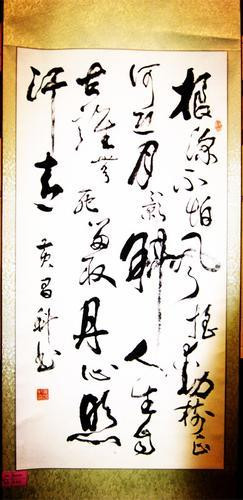 根深不怕風搖動樹正
何愁月影斜人生自
古誰無死留取丹心照
汗青
黄昌科书